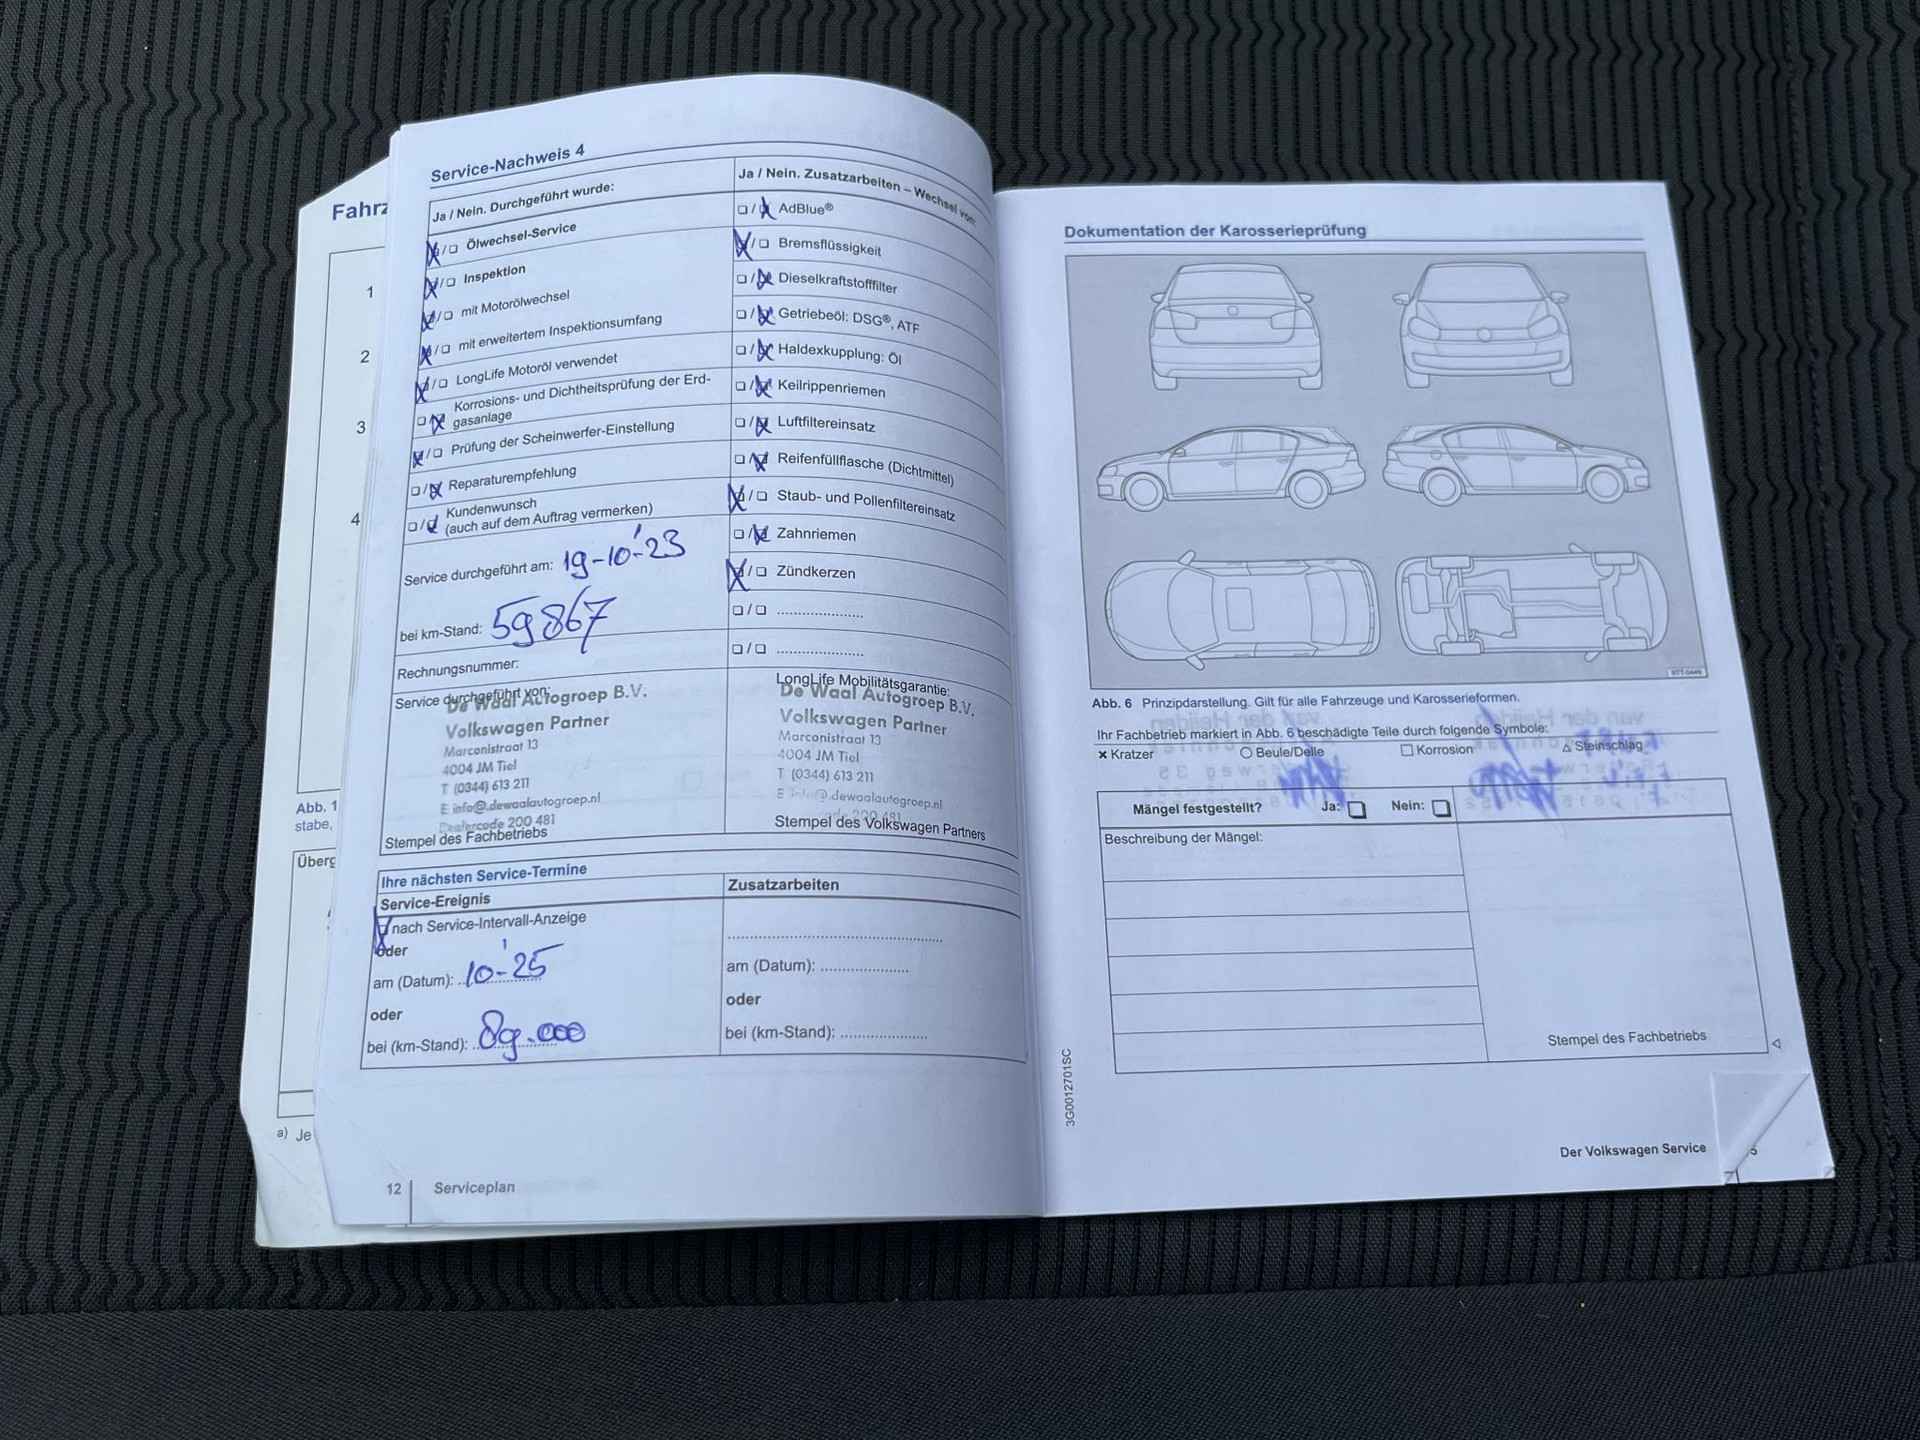 Service-Nachweis 4
Ja / Nein. Durchgeführt wurde:
Ölwechsel-Service
Inspektion
mit Motorölwechsel
mit erweitertem Inspektionsumfang
LongLife Motoröl verwendet
Korrosions- und Dichtheitsprüfung der Erd-
gasanlage
Prüfung der Scheinwerfer-Einstellung
Reparaturempfehlung
Kundenwunsch
(auch auf dem Auftrag vermerken)
Service durchgeführt am: 19-10-'23
bei km-Stand: 59867
Rechnungsnummer:
Service durchgeführt von:
De Waal Autogroep B.V.
Volkswagen Partner
Marconistraat 13
4004 JM Tiel
T (0344) 613 211
E info@.dewaalautogroep.nl
Dealercode 200 481
Stempel des Fachbetriebs
Ja / Nein. Zusatzarbeiten – Wechsel von:
AdBlue®
Bremsflüssigkeit
Dieselkraftstofffilter
Getriebeöl: DSG®, ATF
Haldexkupplung: Öl
Keilrippenriemen
Luftfiltereinsatz
Reifenfüllflasche (Dichtmittel)
Staub- und Pollenfiltereinsatz
Zahnriemen
Zündkerzen
LongLife Mobilitätsgarantie:
De Waal Autogroep B.V.
Volkswagen Partner
Marconistraat 13
4004 JM Tiel
T (0344) 613 211
E info@.dewaalautogroep.nl
200 481
Stempel des Volkswagen Partners
Ihre nächsten Service-Termine
Service-Ereignis
nach Service-Intervall-Anzeige
oder
am (Datum): 10-'25
oder
bei (km-Stand): 89.000
Zusatzarbeiten
am (Datum):
oder
bei (km-Stand):
12 Serviceplan
Fahrz
1
2
3
4
Abb. 1
stabe,
Überg
a) Je
Dokumentation der Karosserieprüfung
Abb. 6 Prinzipdarstellung. Gilt für alle Fahrzeuge und Karosserieformen.
Ihr Fachbetrieb markiert in Abb. 6 beschädigte Teile durch folgende Symbole:
× Kratzer ○ Beule/Delle □ Korrosion △ Steinschlag
Mängel festgestellt? Ja: Nein:
Beschreibung der Mängel:
Stempel des Fachbetriebs
3G0012701SC
Der Volkswagen Service